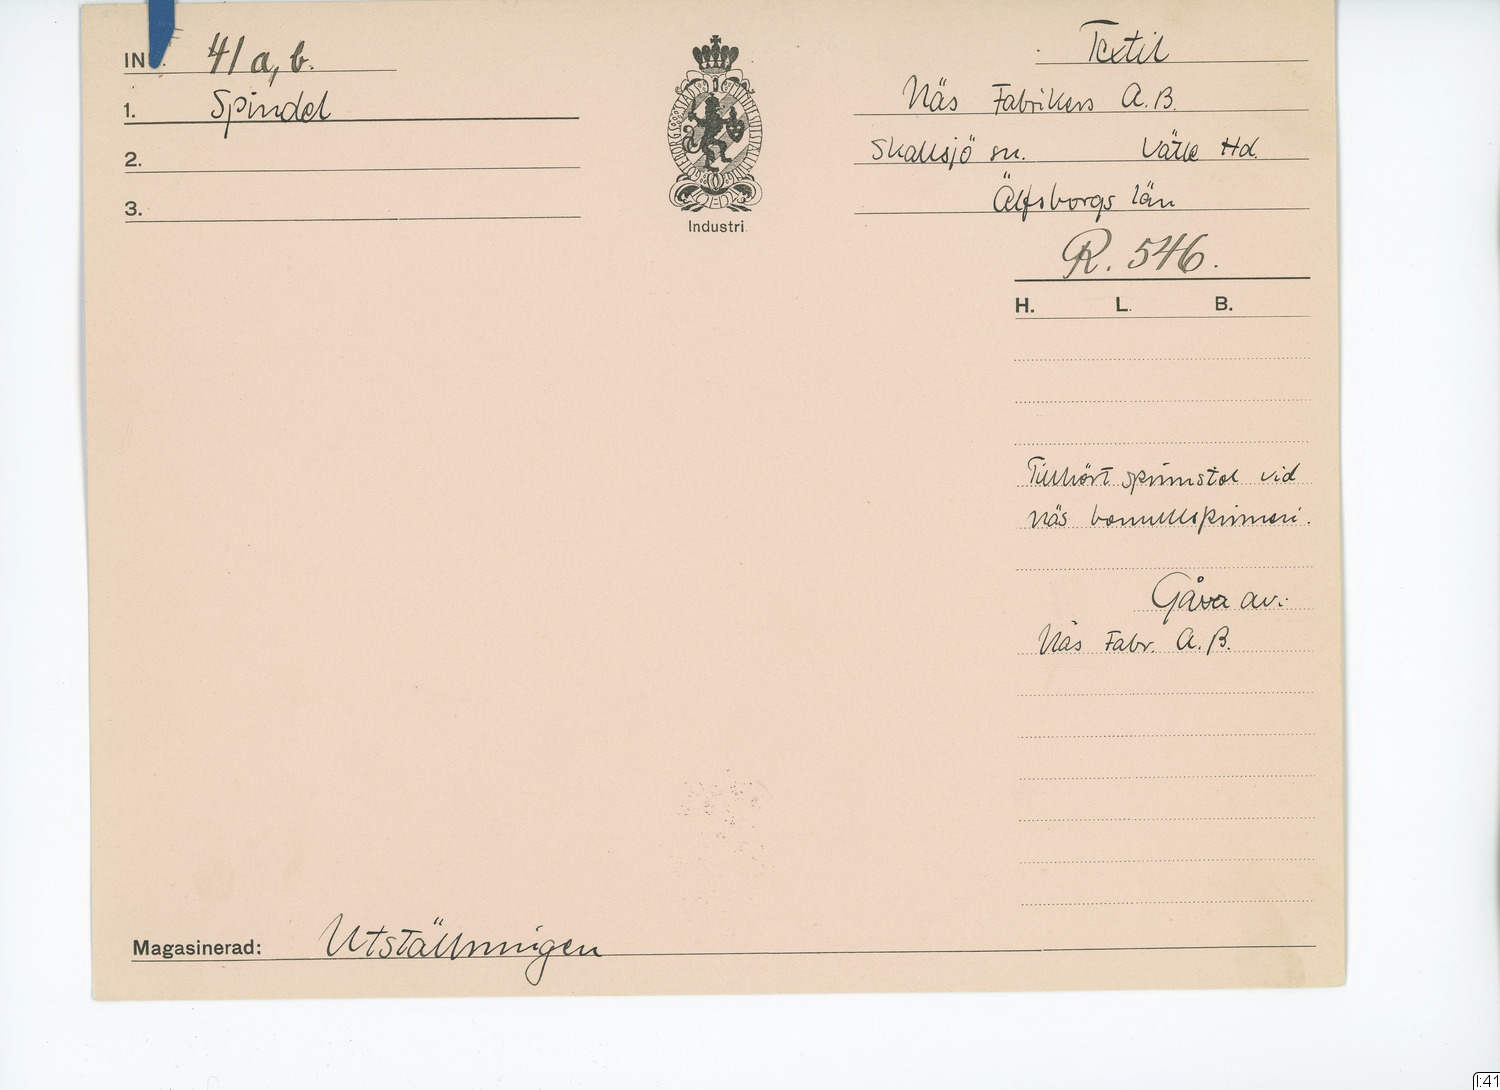 IN 41 a, b.
1. Spindel
2.
3.
Industri.
Textil
Näs Fabrikers A.B.
Skallsjö sn. Vätle Hd.
Älfsborgs län
R. 546.
H. L. B.
Tillhört spinnstol vid
Näs bomullsspinneri.
Gåva av:
Näs Fabr. A.B.
Magasinerad: Utställningen
I:41